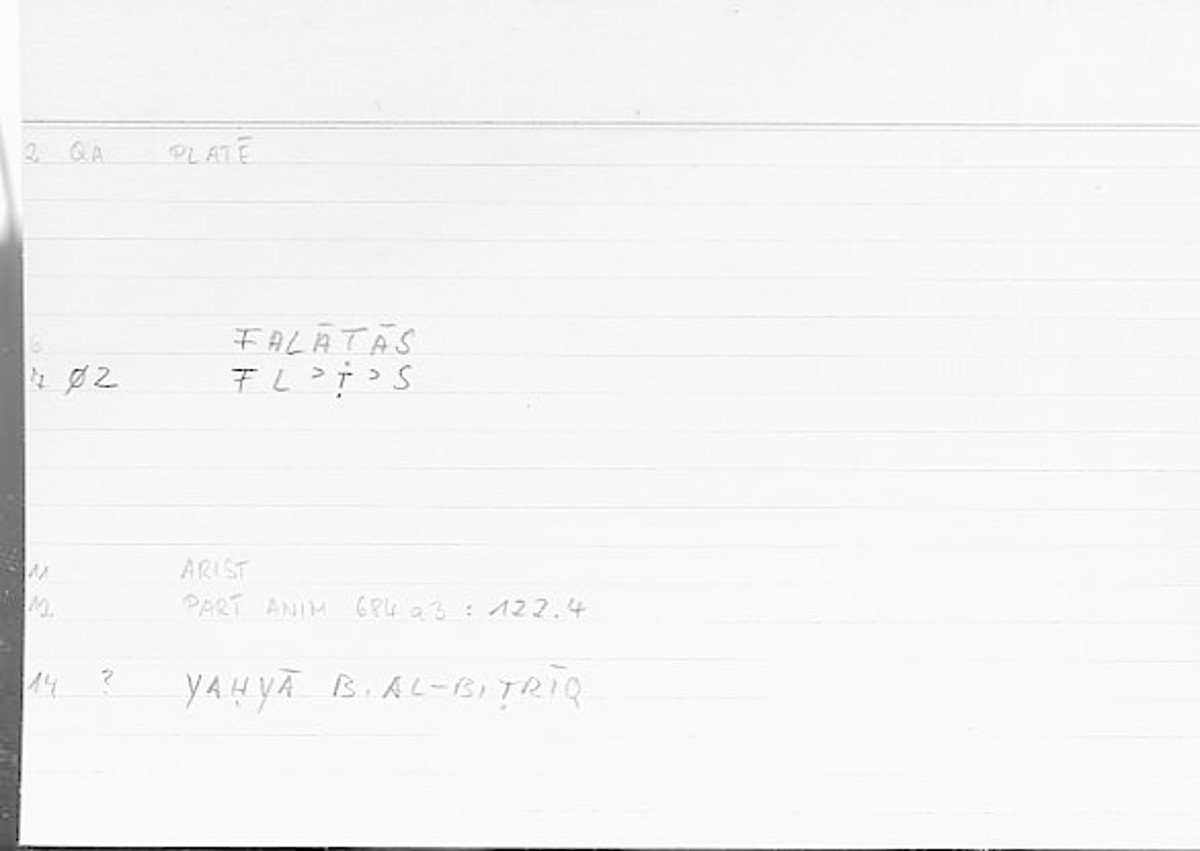 2 QA PLATĒ
6 FALĀTĀS
7 Ø2 FL>Ṭ>S
11 ARIST
12 PART ANIM 684 a3 : 122.4
14 ? YAḤYĀ B. AL-BIṬRĪQ